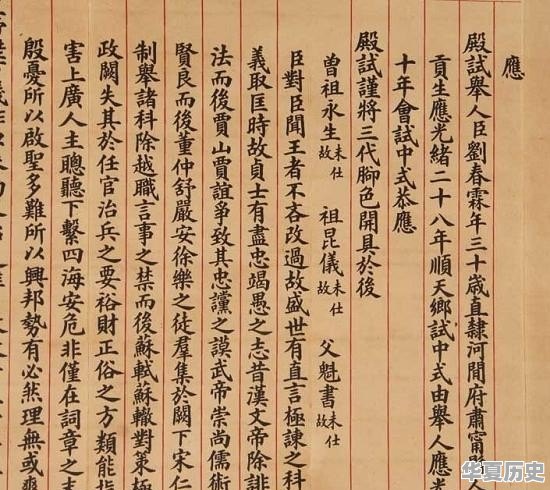 應
殿試舉人臣劉春霖年三十歲直隸河間府肅甯
貢生應光緒二十八年順天鄉試中式由舉人應光
十年會試中式恭應
殿試謹將三代腳色開具於後
曾祖永生未仕故 祖昆儀未仕故 父魁書未仕故
臣對臣聞王者不吝改過故盛世有直言極諫之科
義取匡時故貞士有盡忠竭愚之志昔漢文帝除誹
法而後賈山賈誼爭致其忠讜之謨武帝崇尚儒術
賢良而後董仲舒嚴安徐樂之徒羣集於闕下宋仁
制舉諸科除越職言事之禁而後蘇軾蘇轍對策極
政闕失其於任官治兵之要裕財正俗之方類能指
害上廣人主聰聽下繫四海安危非僅在詞章之
殷憂所以啟聖多難所以興邦勢有必然理無或爽
华夏历史